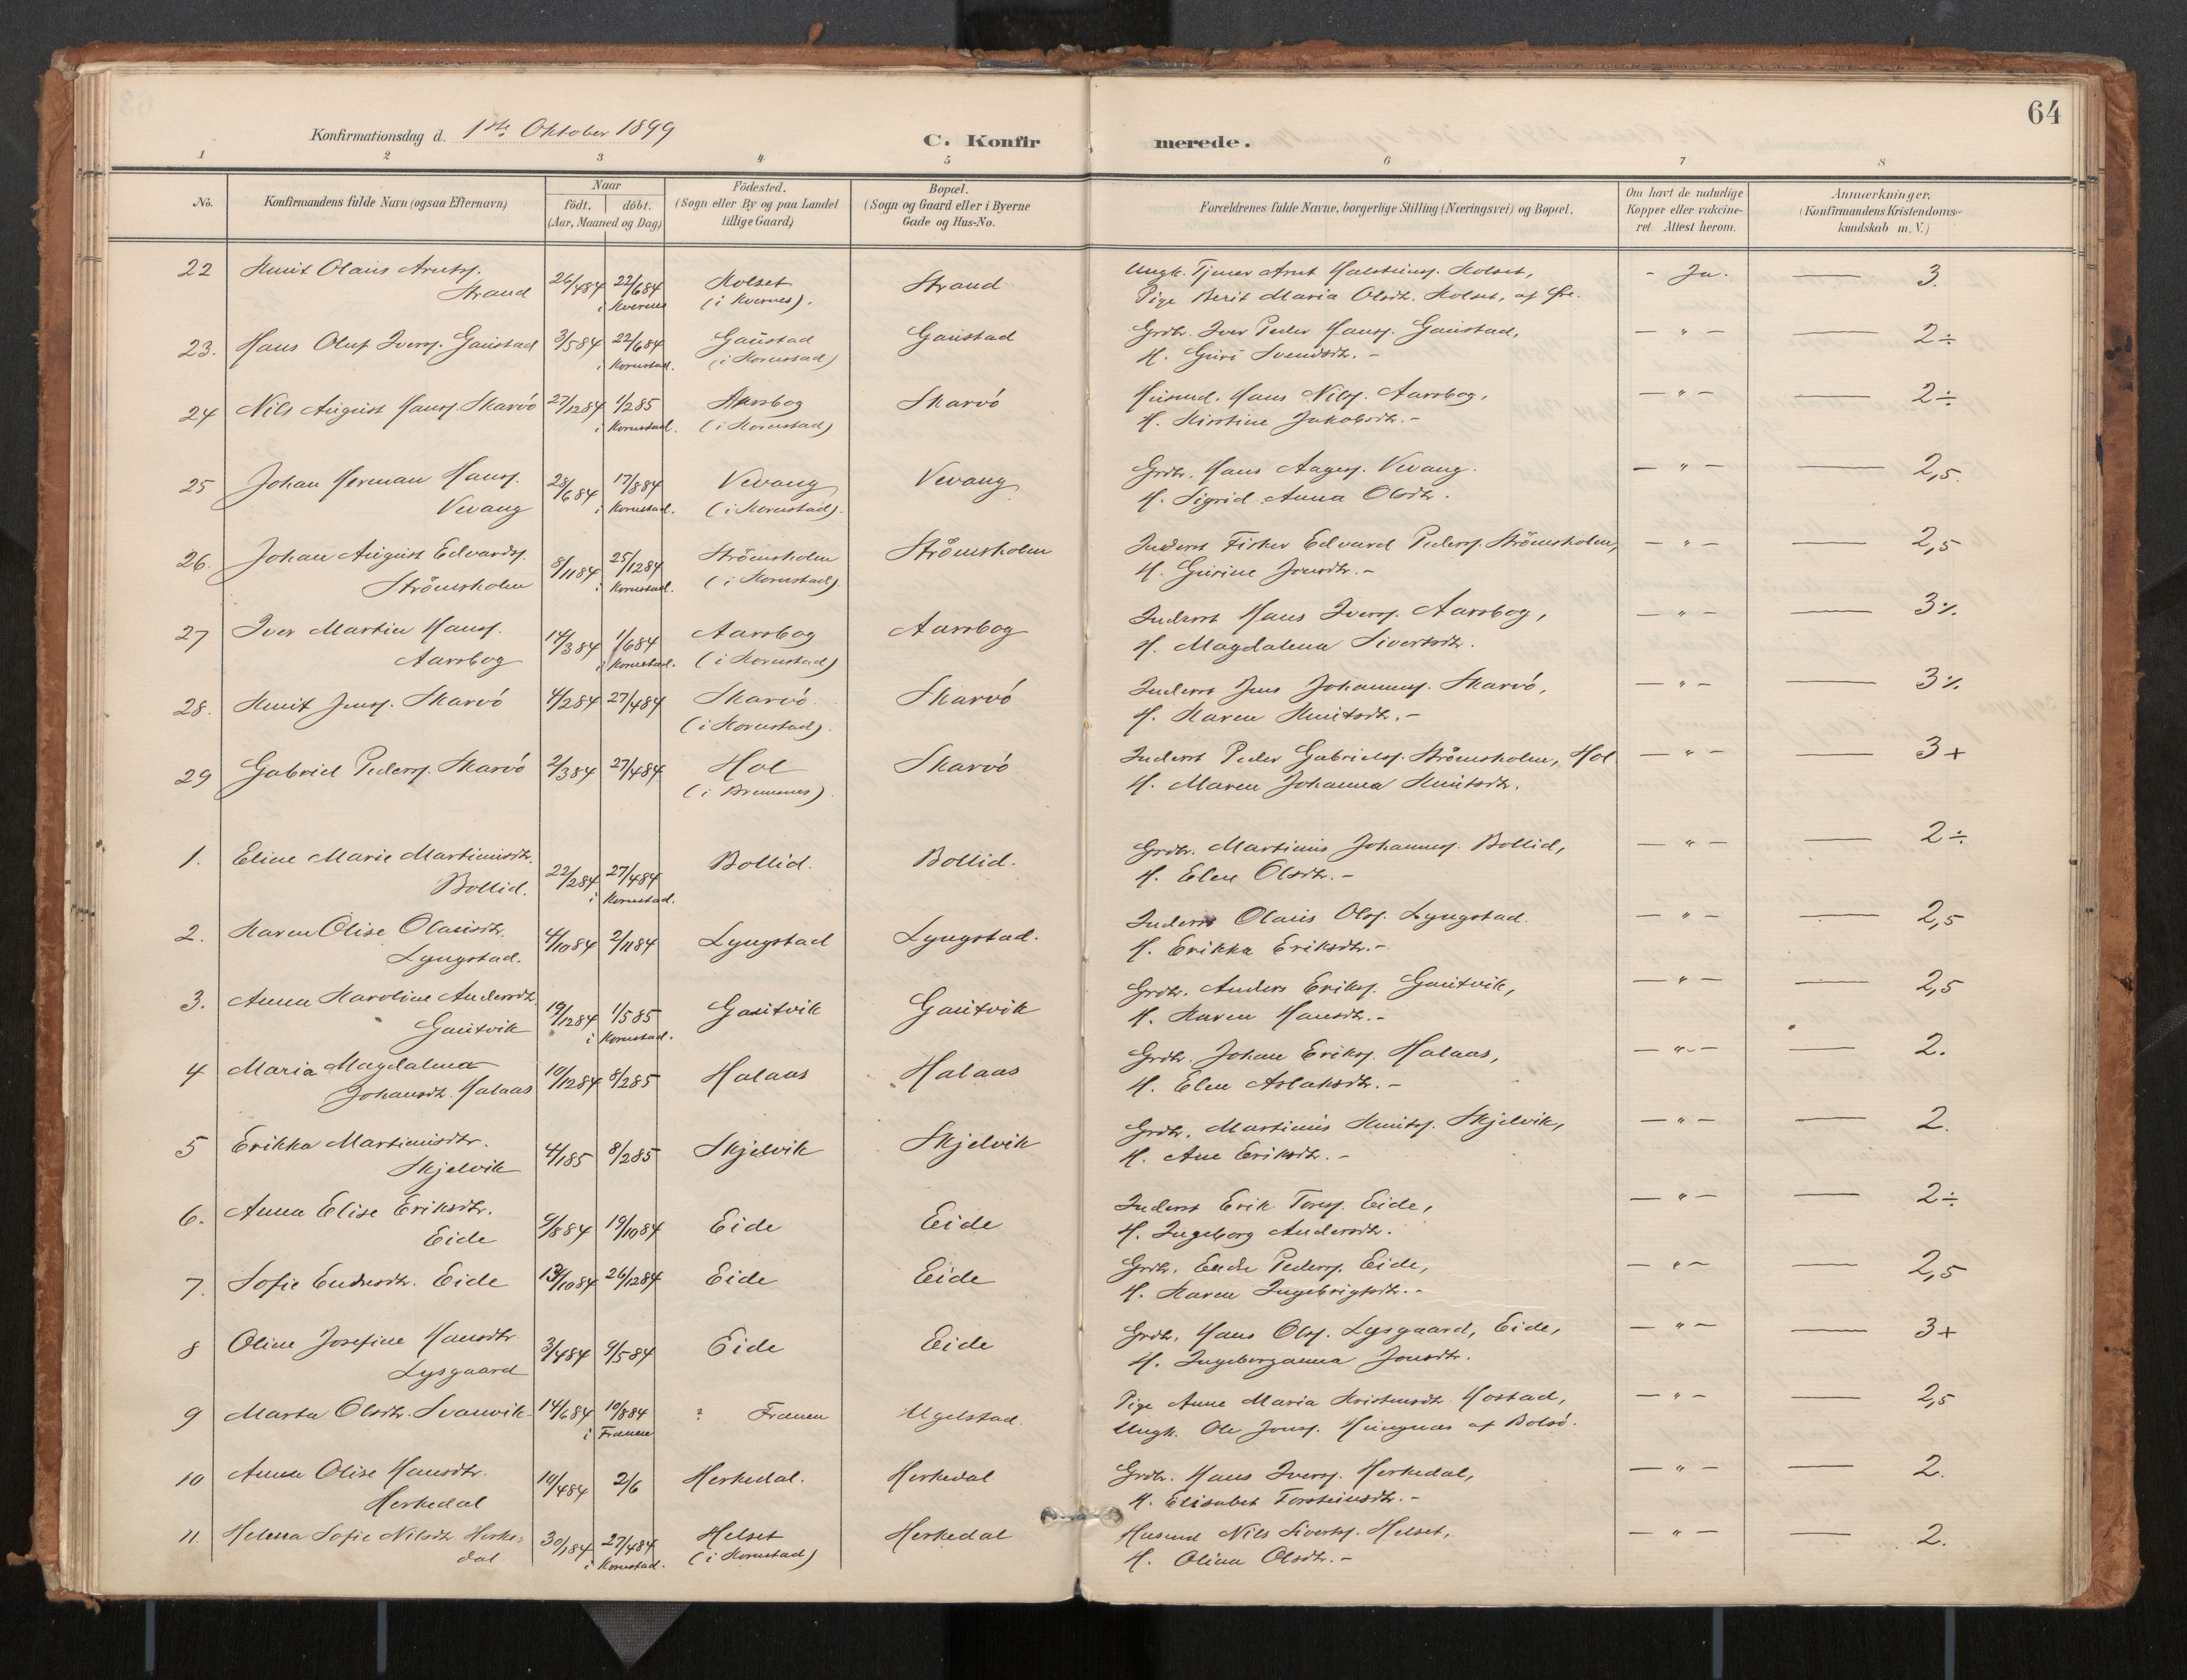 64
Konfirmationsdag d. 1ste Oktober 1899
C. Konfirmerede.
1 2 3 4 5 6 7 8
No. | Konfirmandens fulde Navn (ogsaa Efternavn) | Naar födt. | döbt. (Aar, Maaned og Dag) | Födested. (Sogn eller By og paa Landet tillige Gaard) | Bopæl. (Sogn og Gaard eller i Byerne Gade og Hus-No. | Forældrenes fulde Navne, borgerlige Stilling (Næringsvei) og Bopæl. | Om havt de naturlige Kopper eller vakcineret. Attest herom. | Anmærkninger. (Konfirmandens Kristendomskundskab m. V.)
22 Knut Olaus Arntss. Strand 26/484 22/684 i Kvernes Kolset (i Kvernes). Strand Ungk. Tjener Arnt Halsteinss. Kolset, - Ja. — 3.
Pige Berit Maria Olsdtr. Kolset, af Øre.
23. Hans Oluf Iverss. Gaustad 3/584 22/684 i Kornstad. Gaustad (i Kornstad) Gaustad Grdbr. Iver Peder Hanss. Gaustad, — " — — 2÷
H. Guri Svendsdtr. -
24 Nils August Hanss. Skarvö 27/1284 1/285 i Kornstad. Aarsbog (i Kornstad) Skarvö Husmd. Hans Nilss. Aarsbog, — " — — 2÷
H. Kirstine Jakobsdtr. -
25 Johan Herman Hanss. Vevang 28/684 17/884 i Kornstad. Vevang (i Kornstad). Vevang Grdbr. Hans Aagess. Vevang. — " — — 2,5.
H. Sigrid Anna Olsdtr.
26. Johan August Edvardss. Strömsholm 8/1184 25/1284 i Kornstad. Strömsholm (i Kornstad) Strömsholm Inderst Fisker Edvard Pederss. Strömsholm, — " — — 2,5
H. Gurine Jonsdtr. -
27 Iver Martin Hanss. Aarsbog 14/384 1/684 i Kornstad. Aarsbog (i Kornstad) Aarsbog Inderst Hans Iverss. Aarsbog, — " — — 3÷
H. Magdalena Sivertsdtr.
28. Knut Jenss. Skarvö 4/284 27/484 Skarvö. (i Kornstad). Skarvö Inderst Jens Johanness. Skarvö, — " — — 3÷
H. Karen Knutsdtr. -
29 Gabriel Pederss. Skarvö 2/384 27/484 Hol (i Bremsnes). Skarvö Inderst Peder Gabrielss. Strömsholm, Hol — " — — 3+
H. Maren Johanna Knutsdtr.
1. Eline Marie Martinusdtr. Bollid. 22/284 27/484 i Kornstad. Bollid. Bollid. Grdbr. Martinus Johanness. Bollid, — " — — 2÷
H. Elen Olsdtr. -
2. Karen Olise Olausdtr. Lyngstad. 4/1084 2/1184 Lyngstad Lyngstad. Inderst Olaus Olss. Lyngstad. — " — — 2,5
H. Erikka Eriksdtr. -
3. Anna Karoline Andersdtr. Gautvik 19/1284 1/585 i Kornstad. Gautvik Gautvik Grdbr. Anders Erikss. Gautvik, — " — — 2,5
H. Karen Hansdtr. -
4 Maria Magdalena Johansdtr. Halaas 10/1284 8/285 Halaas Halaas Grdbr. Johan Erikss. Halaas, — " — — 2.
H. Elen Aslaksdtr. -
5 Erikka Martinusdtr. Skjelvik 4/185 8/285 Skjelvik Skjelvik Grdbr. Martinus Knutss. Skjelvik, — " — — 2.
H. Ane Eriksdtr. -
6. Anna Elise Eriksdtr. Eide 9/884 19/1084 Eide Eide Inderst Erik Toress. Eide, — " — — 2÷
H. Ingeborg Andersdtr.
7. Sofie Endresdtr. Eide 13/1084 26/1284 Eide Eide Grdbr. Endre Pederss. Eide, — " — — 2,5
H. Karen Ingebrigtsdtr. -
8 Oline Josefine Hansdtr. Lysgaard 3/484 9/584 Eide Eide Grdbr. Hans Olss. Lysgaard, Eide, — " — — 3+
H. Ingeborganna Jonsdtr.
9 Marta Olsdtr. Svanvik 14/684 10/884 i Frænen ? Frænen Ugelstad. Pige Anne Maria Kristensdtr. Hostad, — " — — 2,5
Ungk. Ole Jonss. af Bolsö.
10 Anna Olise Hansdtr. Herkedal 10/484 2/6 Herkedal. Herkedal Grdbr. Hans Iverss. Herkedal, — " — — 2.
H. Elisabet Torsteinsdtr. -
11. Helena Sofie Nilsdtr. Herkedal 30/184 27/484 i Kornstad. Helset (i Kornstad) Herkedal Husmd Nils Sivertss. Helset, — " — — 2.
H. Olina Olsdtr. -